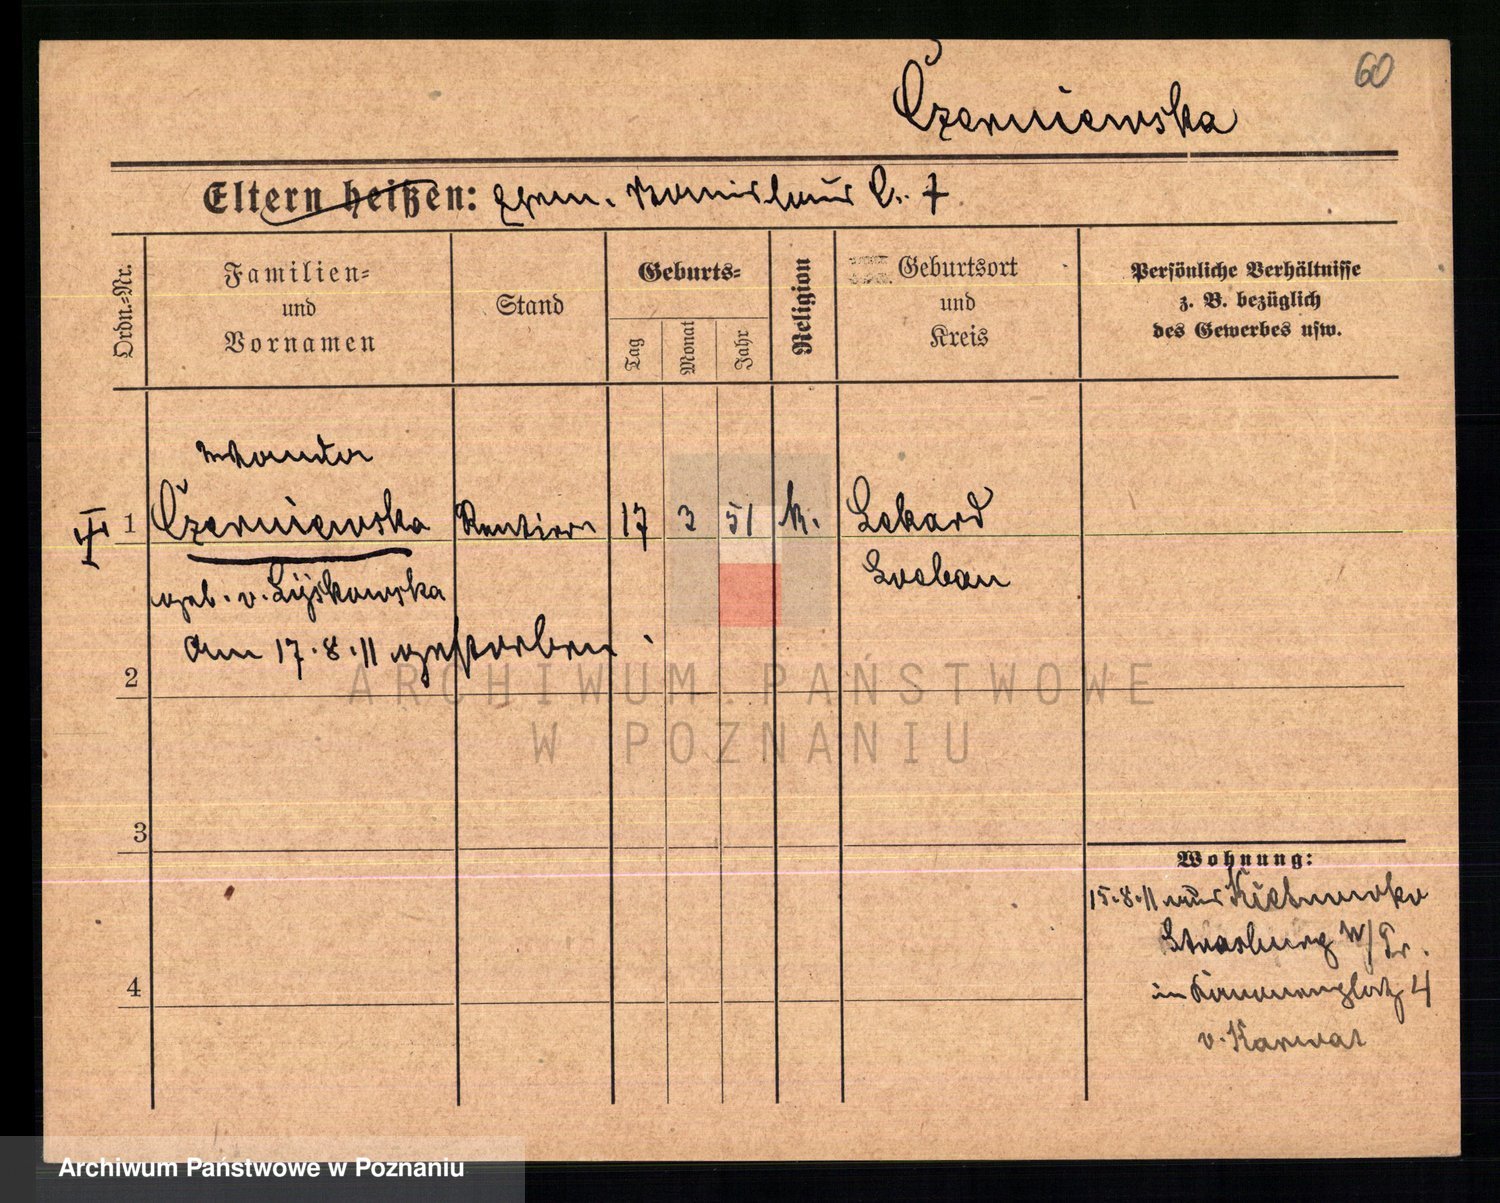 60
Czerniewska
Eltern heißen: Ehem. Stanislaus C. †
Ordn.-Nr.
Familien-
und
Vornamen
Stand
Geburts-
Tag
Monat
Jahr
Religion
Geburtsort
und
Kreis
Persönliche Verhältnisse
z. B. bezüglich
des Gewerbes usw.
Wanda
1 Czerniewska Rentiere 17 3 51 k. Lekard
geb. v. Łyskowska Loebau
am 17.8.11 gestorben
2
ARCHIWUM PAŃSTWOWE
W POZNANIU
3
Wohnung:
15.8.11 aus
Strasburg W/Pr.
4
in 4
v. Karwat
Archiwum Państwowe w Poznaniu